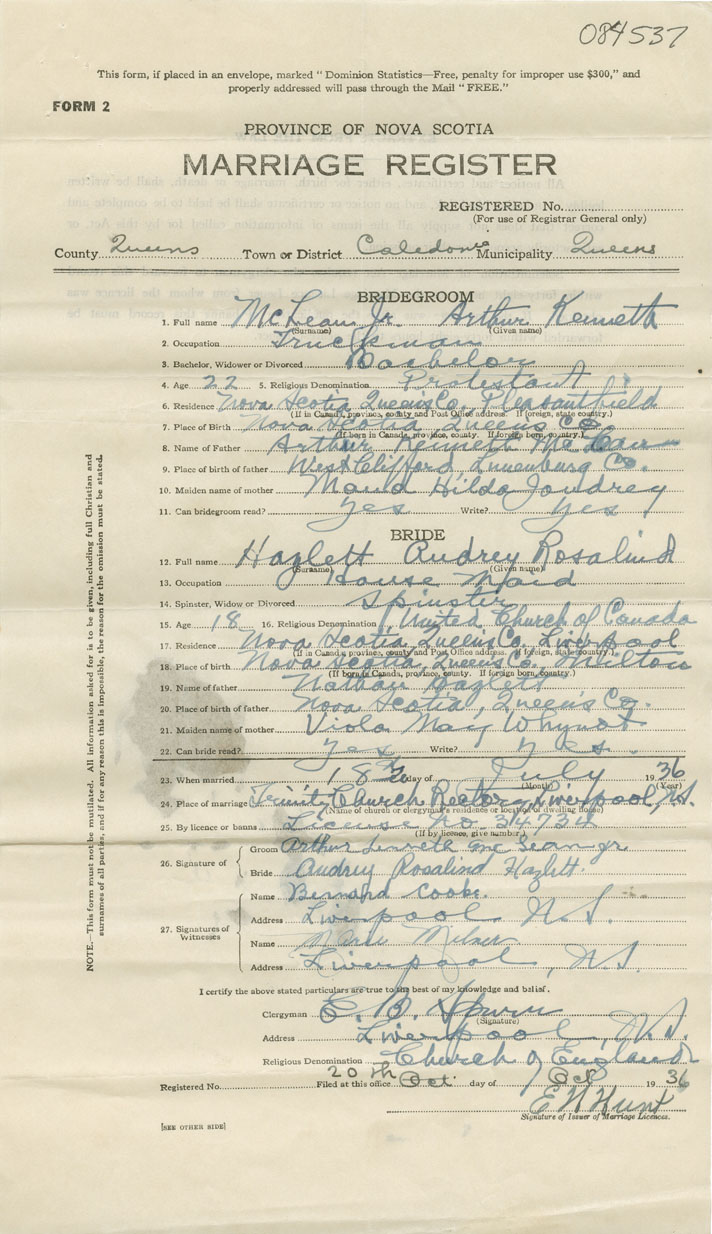 084537
This form, if placed in an envelope, marked "Dominion Statistics—Free, penalty for improper use $300," and
properly addressed will pass through the Mail "FREE."
FORM 2
PROVINCE OF NOVA SCOTIA
MARRIAGE REGISTER
REGISTERED No.
(For use of Registrar General only)
County Queens Town or District Caledonia Municipality Queens
BRIDEGROOM
1. Full name McLean Jr. Arthur Kenneth
(Surname) (Given name)
2. Occupation Truckman
3. Bachelor, Widower or Divorced Bachelor
4. Age 22 5. Religious Denomination Protestant
6. Residence Nova Scotia Queens Co. Pleasantfield
(If in Canada, province, county and Post Office address. If foreign, state country.)
7. Place of Birth Nova Scotia Queens Co.
(If born in Canada, province, county. If foreign born, country.)
8. Name of Father Arthur Kenneth McLean
9. Place of birth of father West Clifford, Lunenburg Co.
10. Maiden name of mother Maud Hilda Joudrey
11. Can bridegroom read? Yes Write? Yes
BRIDE
12. Full name Hazlett Audrey Rosalind
(Surname) (Given name)
13. Occupation House Maid
14. Spinster, Widow or Divorced Spinster
15. Age 18 16. Religious Denomination United Church of Canada
17. Residence Nova Scotia, Queens Co., Liverpool
(If in Canada, province, county and Post Office address. If foreign, state country.)
18. Place of birth Nova Scotia, Queens Co., Milton
(If born in Canada, province, county. If foreign born, country.)
19. Name of father Nathan Hazlett
20. Place of birth of father Nova Scotia, Queen's Co.
21. Maiden name of mother Viola May Whynot
22. Can bride read? Yes Write? Yes.
23. When married 18th day of July 1936
(Month) (Year)
24. Place of marriage Trinity Church Rectory, Liverpool, N.S.
(Name of church or clergyman's residence or location of dwelling house)
25. By licence or banns License No. 34734
(If by licence, give number)
26. Signature of
Groom Arthur Kenneth McLean jr
Bride Audrey Rosalind Hazlett.
27. Signatures of Witnesses
Name Bernard Cooke.
Address Liverpool N.S.
Name Milner
Address Liverpool, N.S.
I certify the above stated particulars are true to the best of my knowledge and belief.
Clergyman C. B.
(Signature)
Address Liverpool, N.S.
Religious Denomination Church of England
Registered No. Filed at this office 20th Oct. day of Oct 1936
E N Hunt
Signature of Issuer of Marriage Licences.
[SEE OTHER SIDE]
NOTE.—This form must not be mutilated. All information asked for is to be given, including full Christian and
surnames of all parties, and if for any reason this is impossible, the reason for the omission must be stated.